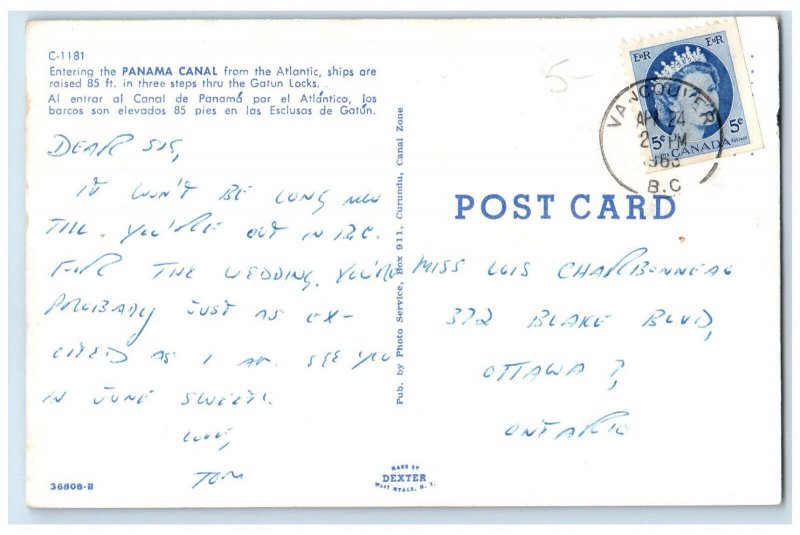 C-1181
Entering the PANAMA CANAL from the Atlantic, ships are
raised 85 ft. in three steps thru the Gatun Locks.
Al entrar al Canal de Panamá por el Atlántico, los
barcos son elevados 85 pies en las Esclusas de Gatún.
DEAR SIS,
IT WON'T BE LONG NOW
TILL YOU'RE OUT IN B.C.
FOR THE WEDDING. YOU'RE
PROBABLY JUST AS EX-
CITED AS I AM. SEE YOU
IN JUNE SWEETS.
LOVE,
TOM
36808-B
Pub. by Photo Service, Box 911, Curundu, Canal Zone
MADE BY
DEXTER
WEST NYACK, N. Y.
5-
EIIR EIIR
5¢ 5¢
POSTES CANADA POSTAGE
VANCOUVER
APR 24
2 PM
1963
B.C
POST CARD
MISS LOIS CHARBONNEAU
372 BLAKE BLVD,
OTTAWA 7,
ONTARIO